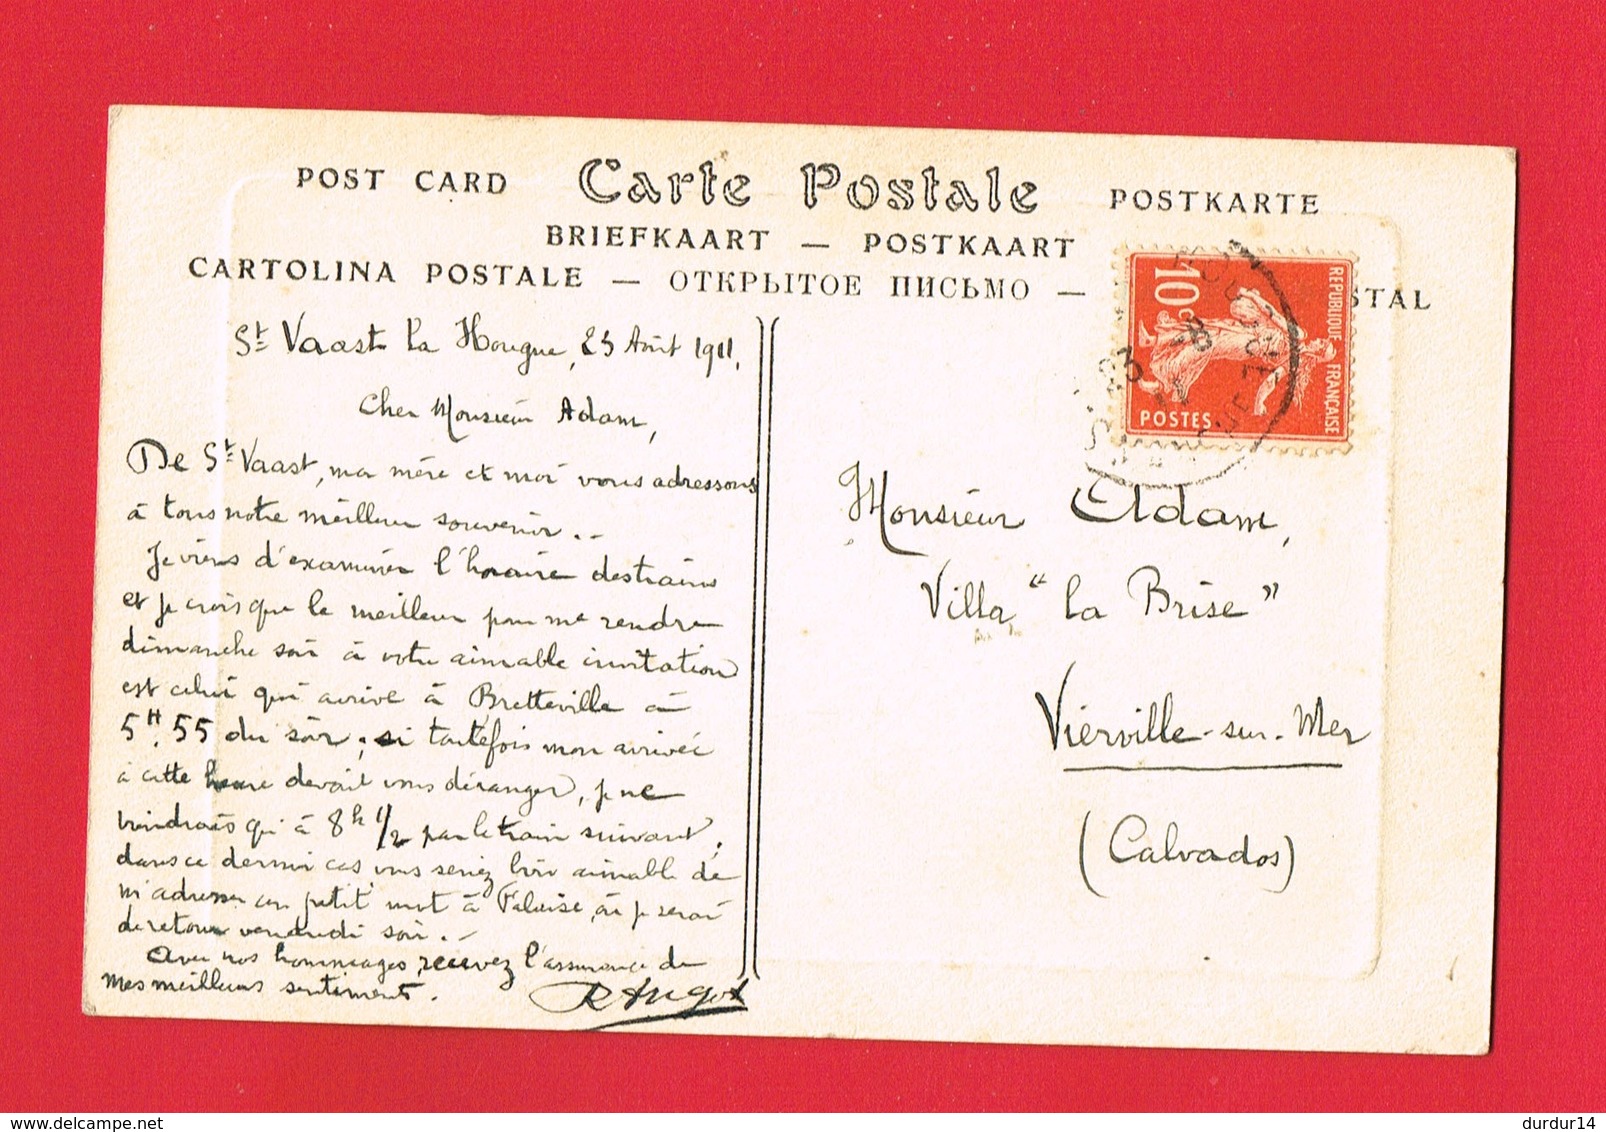 POST CARD Carte Postale POSTKARTE
BRIEFKAART — POSTKAART
CARTOLINA POSTALE — ОТКРЫТОЕ ПИСЬМО — STAL
REPUBLIQUE FRANÇAISE
10c
POSTES
St Vaast la Hougue, 23 Août 1911.
Cher Monsieur Adam,
De St Vaast, ma mère et moi vous adressons
à tous notre meilleur souvenir. –
Je viens d'examiner l'horaire des trains
et je crois que le meilleur pour me rendre
dimanche soir à votre aimable invitation
est celui qui arrive à Bretteville à
5H.55 du soir; si toutefois mon arrivée
à cette heure devait vous déranger, je ne
viendrais qu'à 8h 1/2 par le train suivant;
dans ce dernier cas vous seriez bien aimable de
m'adresser un petit mot à Falaise, où je serai
de retour vendredi soir. –
Avec nos hommages, recevez l'assurance de
mes meilleurs sentiments.
R Angot
Monsieur Adam,
Villa "la Brise"
Vierville-sur-Mer
(Calvados)
delcampe.net
durdur14